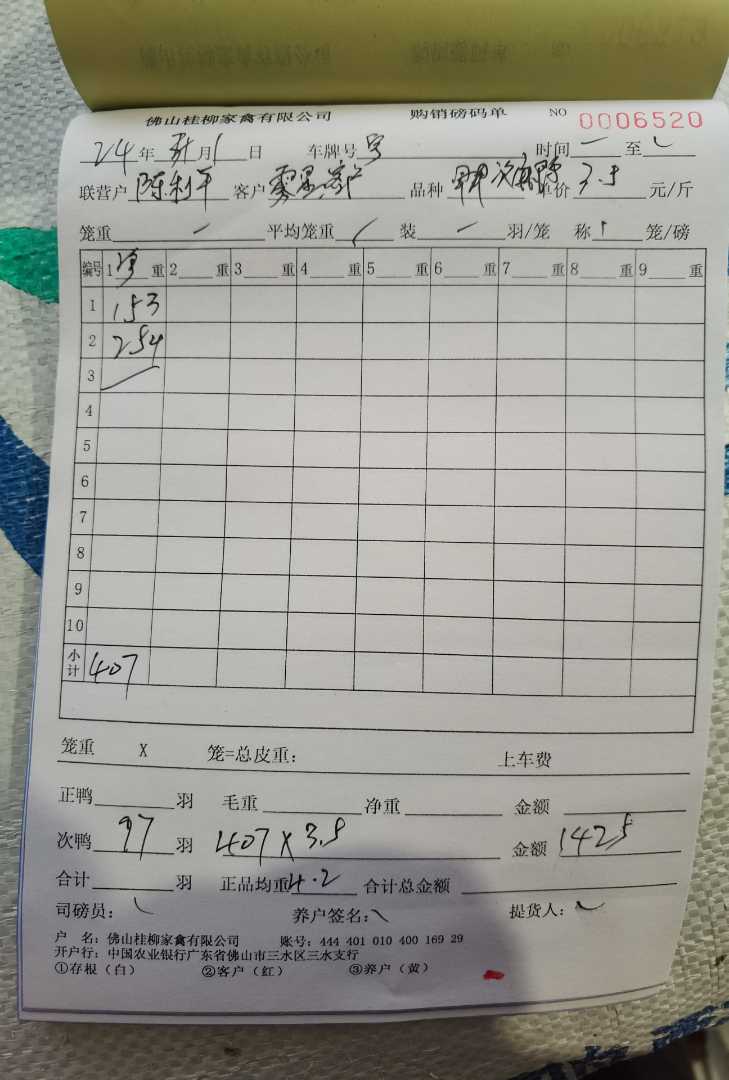 佛山桂柳家禽有限公司 购销磅码单 NO 0006520
24 年 月 1 日 车牌号 时间 至
联营户 陈利平 客户 品种 单价 3.5 元/斤
笼重 平均笼重 装 羽/笼 称 1 笼/磅
编号 1 净 重 2 重 3 重 4 重 5 重 6 重 7 重 8 重 9 重
1 153
2 254
3
4
5
6
7
8
9
10
小计 407
笼重 X 笼=总皮重: 上车费
正鸭 羽 毛重 净重 金额
次鸭 97 羽 407 X 3.5 金额 1425
合计 羽 正品均重 4.2 合计总金额
司磅员: 养户签名: 提货人:
户 名: 佛山桂柳家禽有限公司 账号: 444 401 010 400 169 29
开户行: 中国农业银行广东省佛山市三水区三水支行
①存根（白） ②客户（红） ③养户（黄）